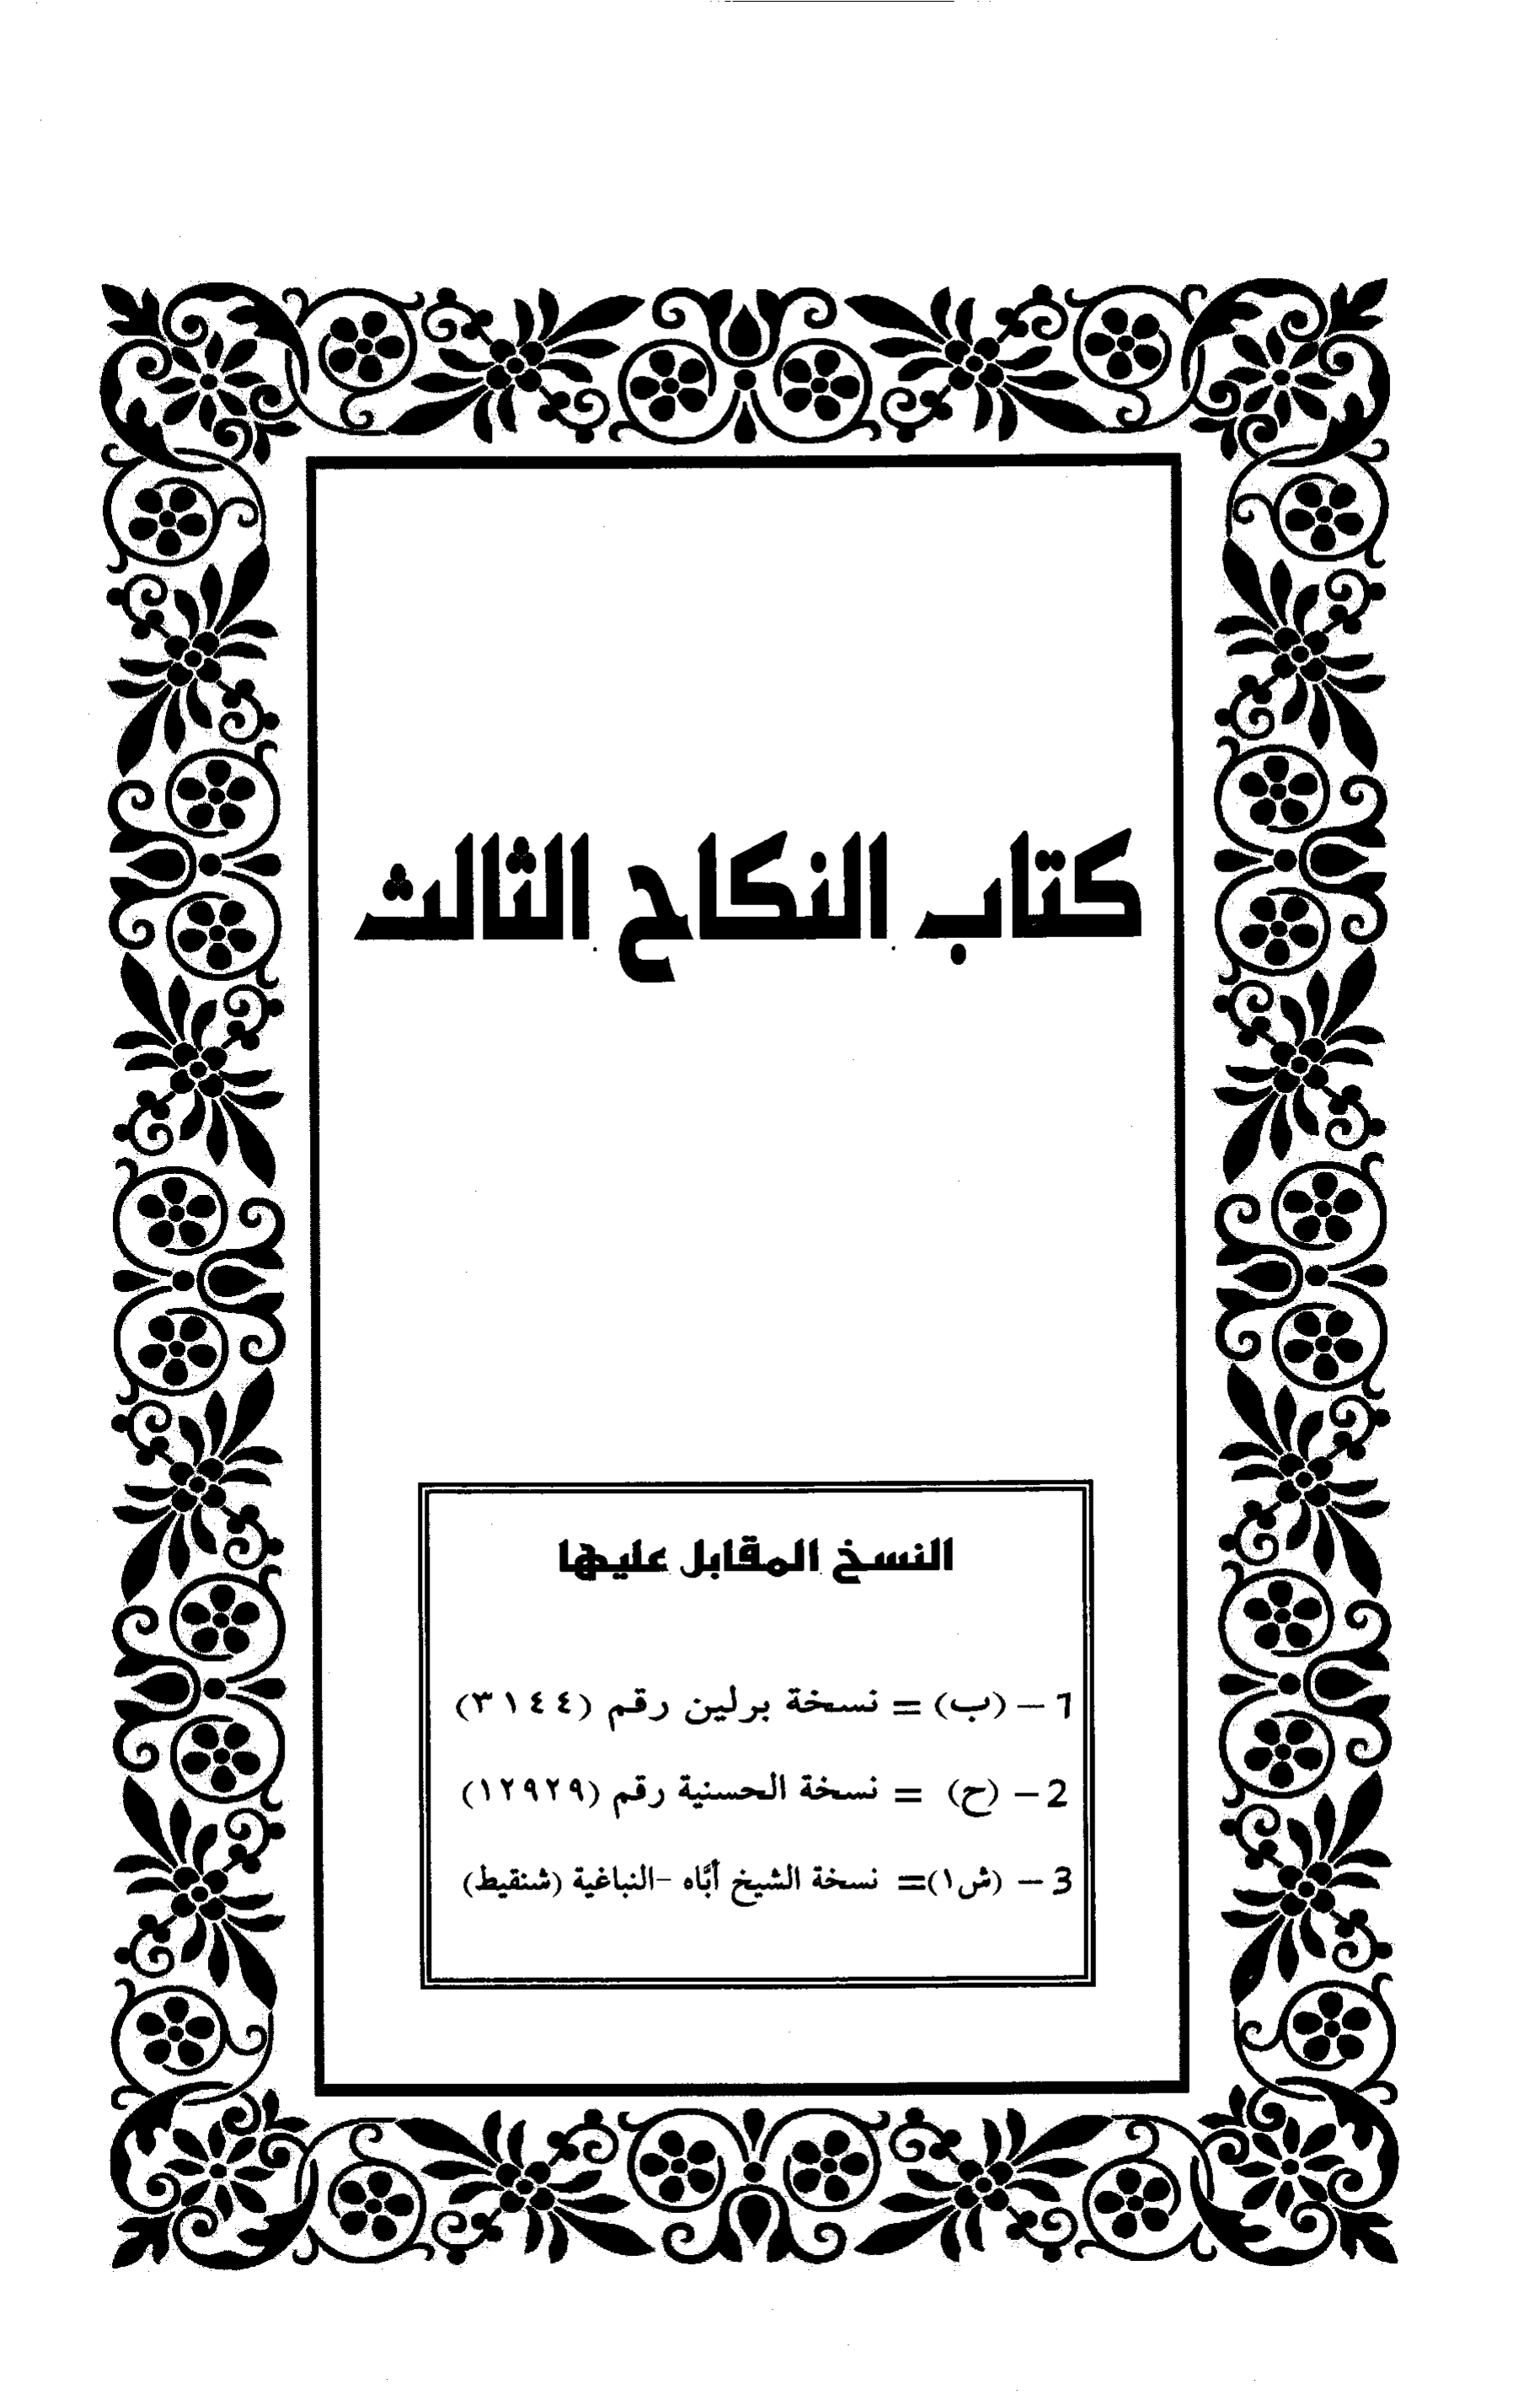 كتاب النكاح الثالث
النسخ المقابل عليها
1 – (ب) = نسخة برلين رقم (٣١٤٤)
2 – (ح) = نسخة الحسنية رقم (١٢٩٢٩)
3 – (ش١)= نسخة الشيخ أبَّاه -النباغية (شنقيط)